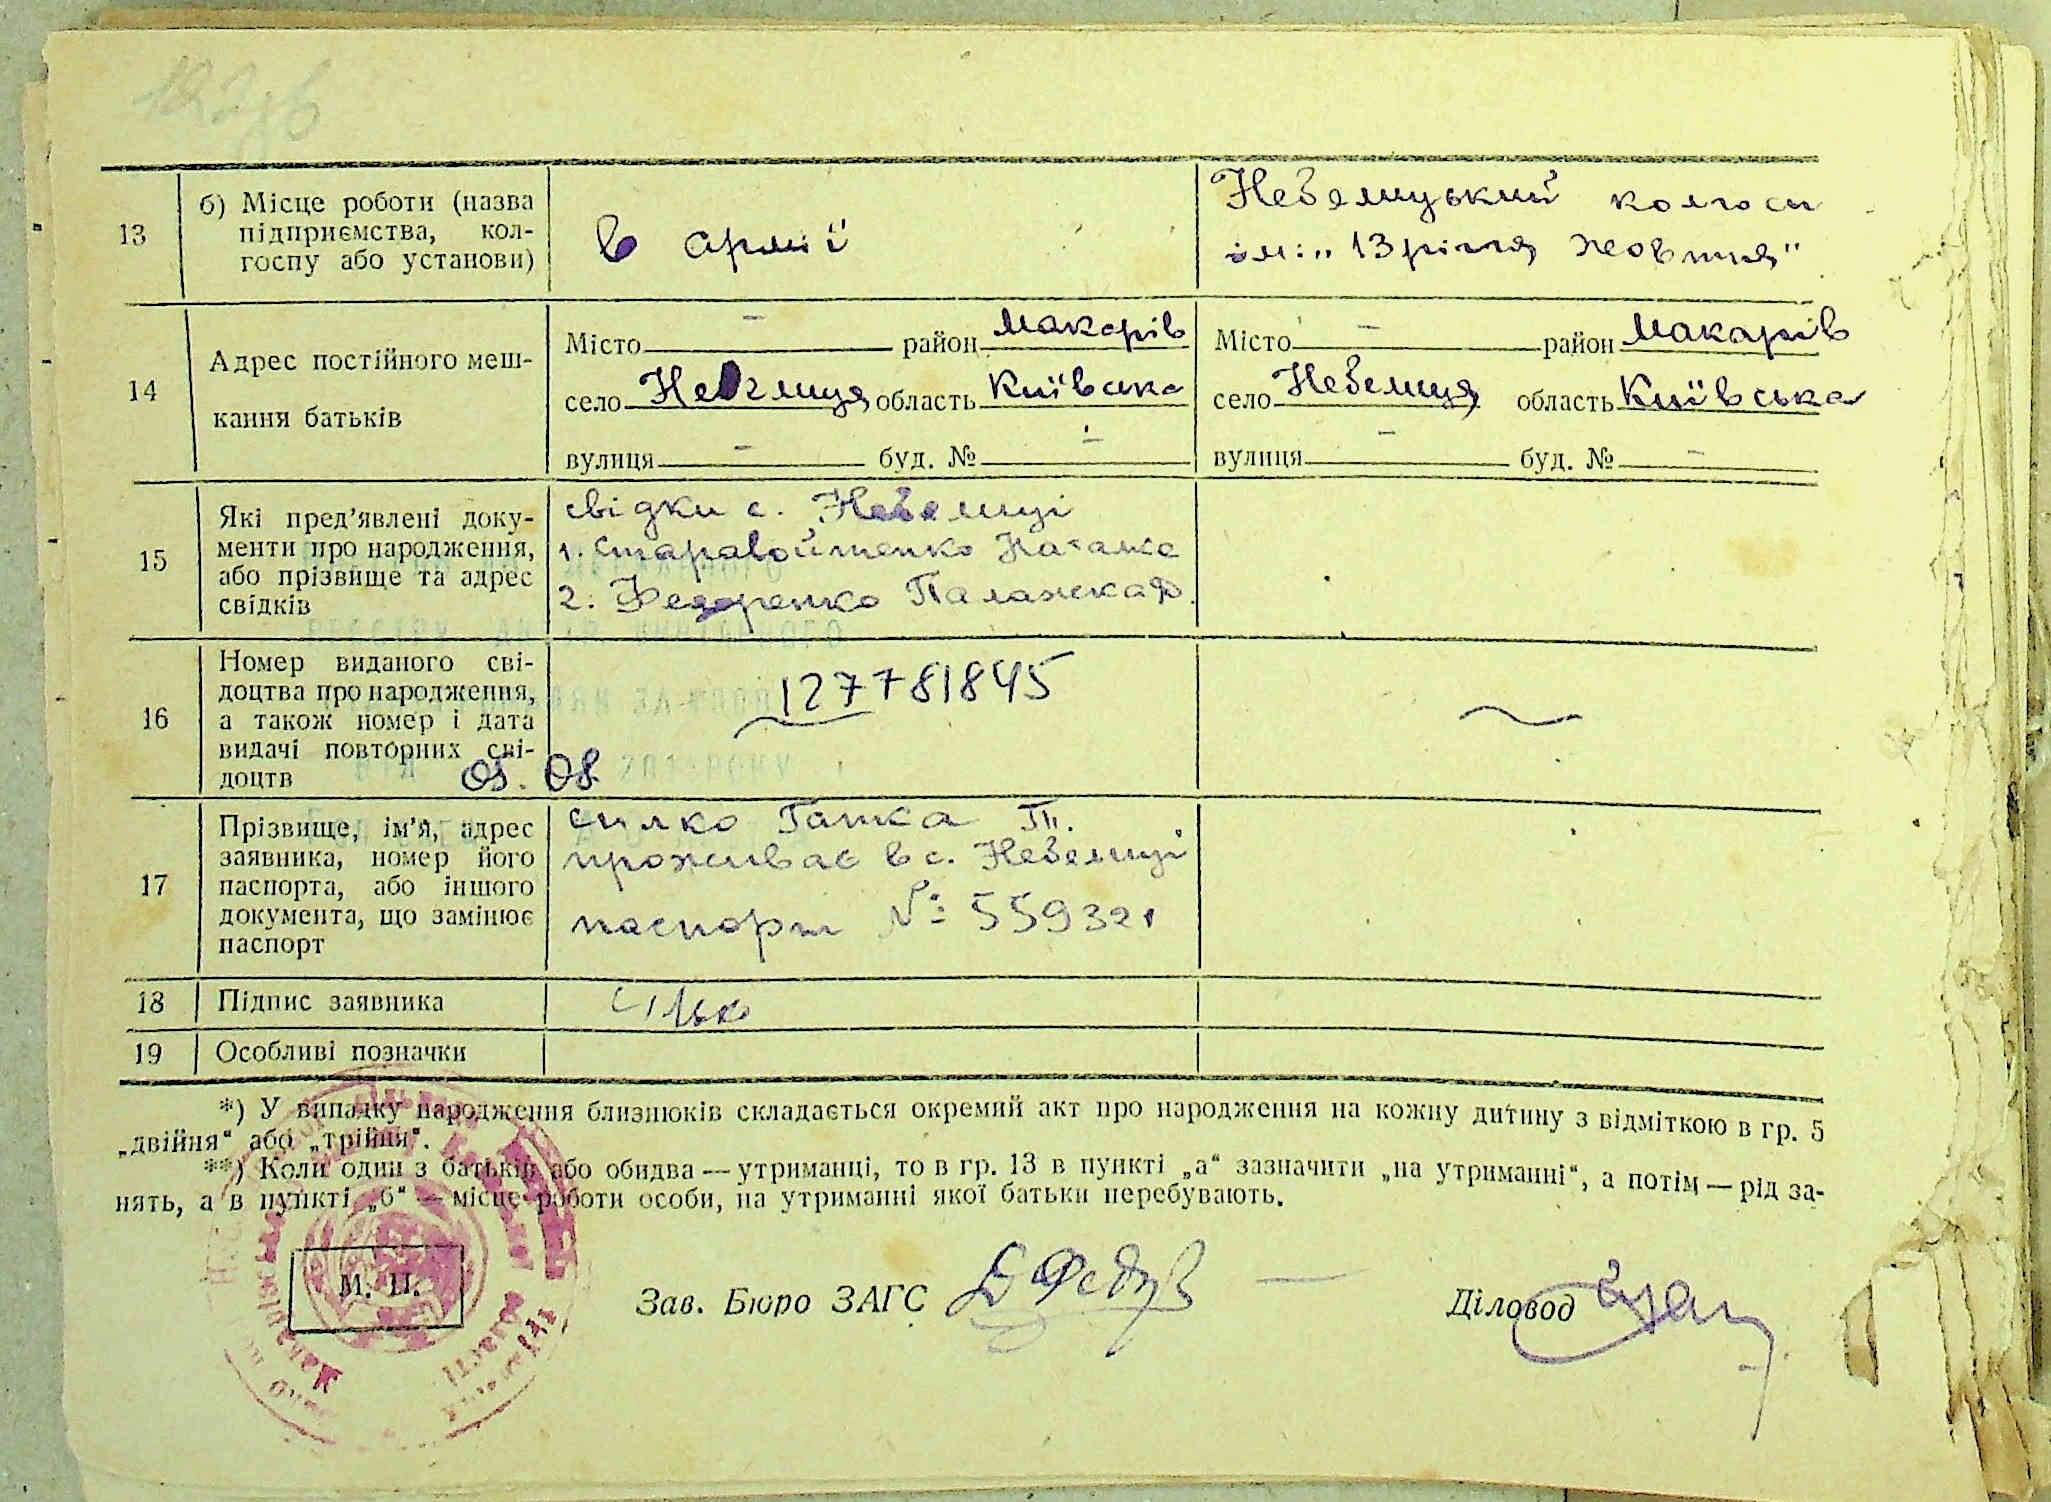 13
б) Місце роботи (назва
підприємства, кол-
госпу або установи)
в армії
Небелицький колгосп
ім: „13 річчя Жовтня"
14
Адрес постійного меш-
кання батьків
Місто — район Макарів
село Небелиця область Київська
вулиця — буд. № —
Місто — район Макарів
село Небелиця область Київська
вулиця — буд. № —
15
Які пред'явлені доку-
менти про народження,
або прізвище та адрес
свідків
свідки с. Небелиці
1. Старавойтенко Наталка
2. Федоренко Палажка Ф.
16
Номер виданого сві-
доцтва про народження,
а також номер і дата
видачі повторних сві-
доцтв
127781845
05. 08.
17
Прізвище, ім'я, адрес
заявника, номер його
паспорта, або іншого
документа, що замінює
паспорт
Силко Гапка П.
проживає в с. Небелиці
паспорт № 559321
18
Підпис заявника
19
Особливі позначки
*) У випадку народження близнюків складається окремий акт про народження на кожну дитину з відміткою в гр. 5
„двійня" або „трійня".
**) Коли один з батьків або обидва — утриманці, то в гр. 13 в пункті „а" зазначити „на утриманні", а потім — рід за-
нять, а в пункті „б" — місце роботи особи, на утриманні якої батьки перебувають.
М. П.
Зав. Бюро ЗАГС
Діловод